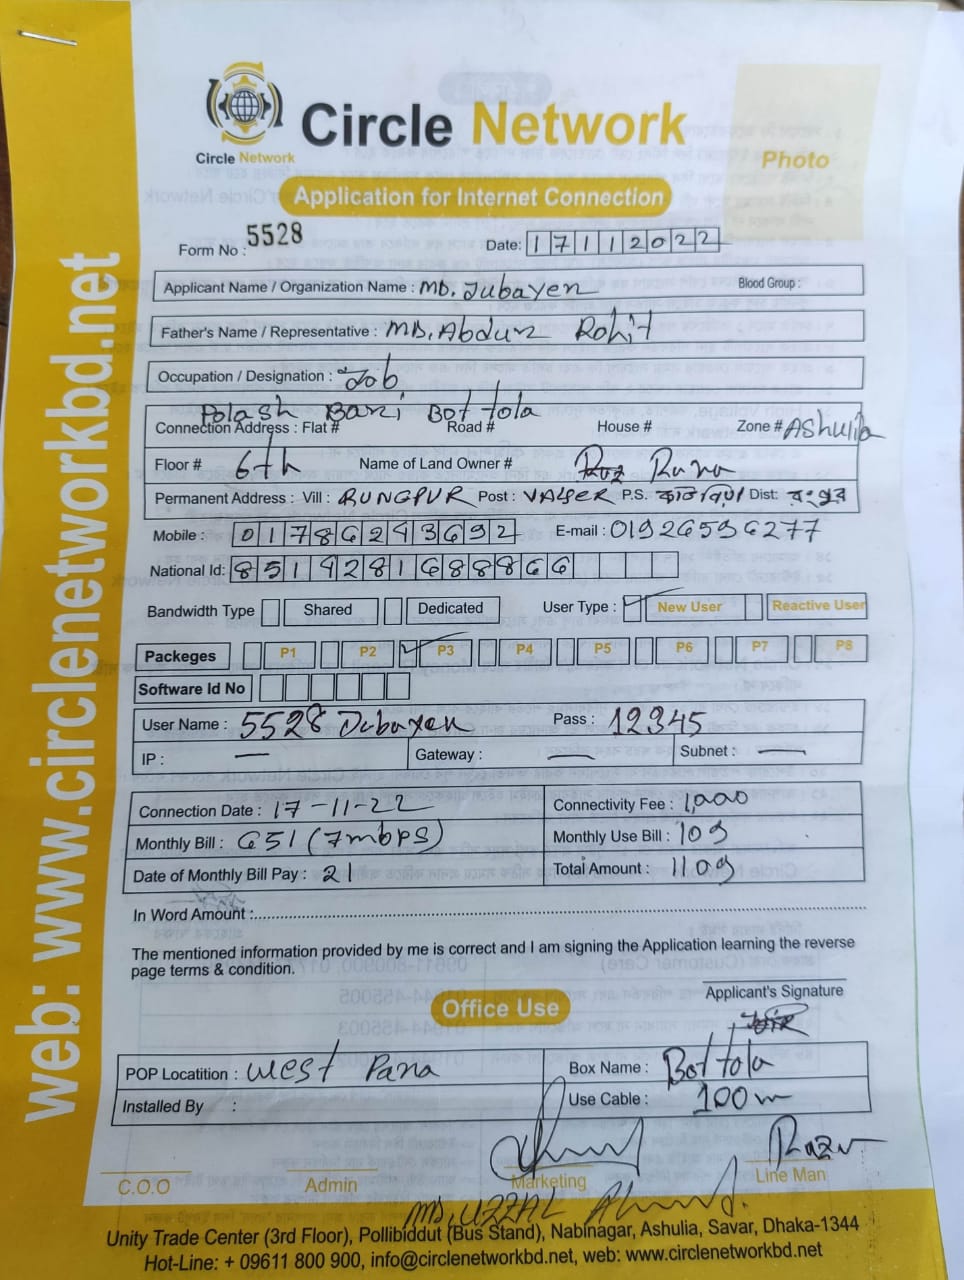 Circle Network
Circle Network
Photo
Application for Internet Connection
Form No : 5528
Date: 17112022
Applicant Name / Organization Name : MD. Jubayen
Blood Group :
Father's Name / Representative : MD. Abdur Rohit
Occupation / Designation : Job
Polash Bari Bottola
Connection Address : Flat # Road # House # Zone # AShulia
Floor # 6th Name of Land Owner # Rana
Permanent Address : Vill : RUNGPUR Post : P.S. Dist:
Mobile : 01786243692 E-mail : 01926596277
National Id: 8519281688866
Bandwidth Type Shared Dedicated User Type : New User Reactive User
Packeges P1 P2 P3 P4 P5 P6 P7 P8
Software Id No
User Name : 5528 Jubayen Pass : 12345
IP : — Gateway : — Subnet : —
Connection Date : 17-11-22 Connectivity Fee : 1,000
Monthly Bill : 651 (7mbps) Monthly Use Bill : 109
Date of Monthly Bill Pay : 21 Total Amount : 1109
In Word Amount :
The mentioned information provided by me is correct and I am signing the Application learning the reverse
page terms & condition.
Applicant's Signature
Office Use
POP Locatition : West Para Box Name : Bottola
Installed By : Use Cable : 100m
Razu
C.O.O Admin Marketing Line Man
MD, UZZAL Ahmed.
Unity Trade Center (3rd Floor), Pollibiddut (Bus Stand), Nabinagar, Ashulia, Savar, Dhaka-1344
Hot-Line: + 09611 800 900, info@circlenetworkbd.net, web: www.circlenetworkbd.net
web: www.circlenetworkbd.net